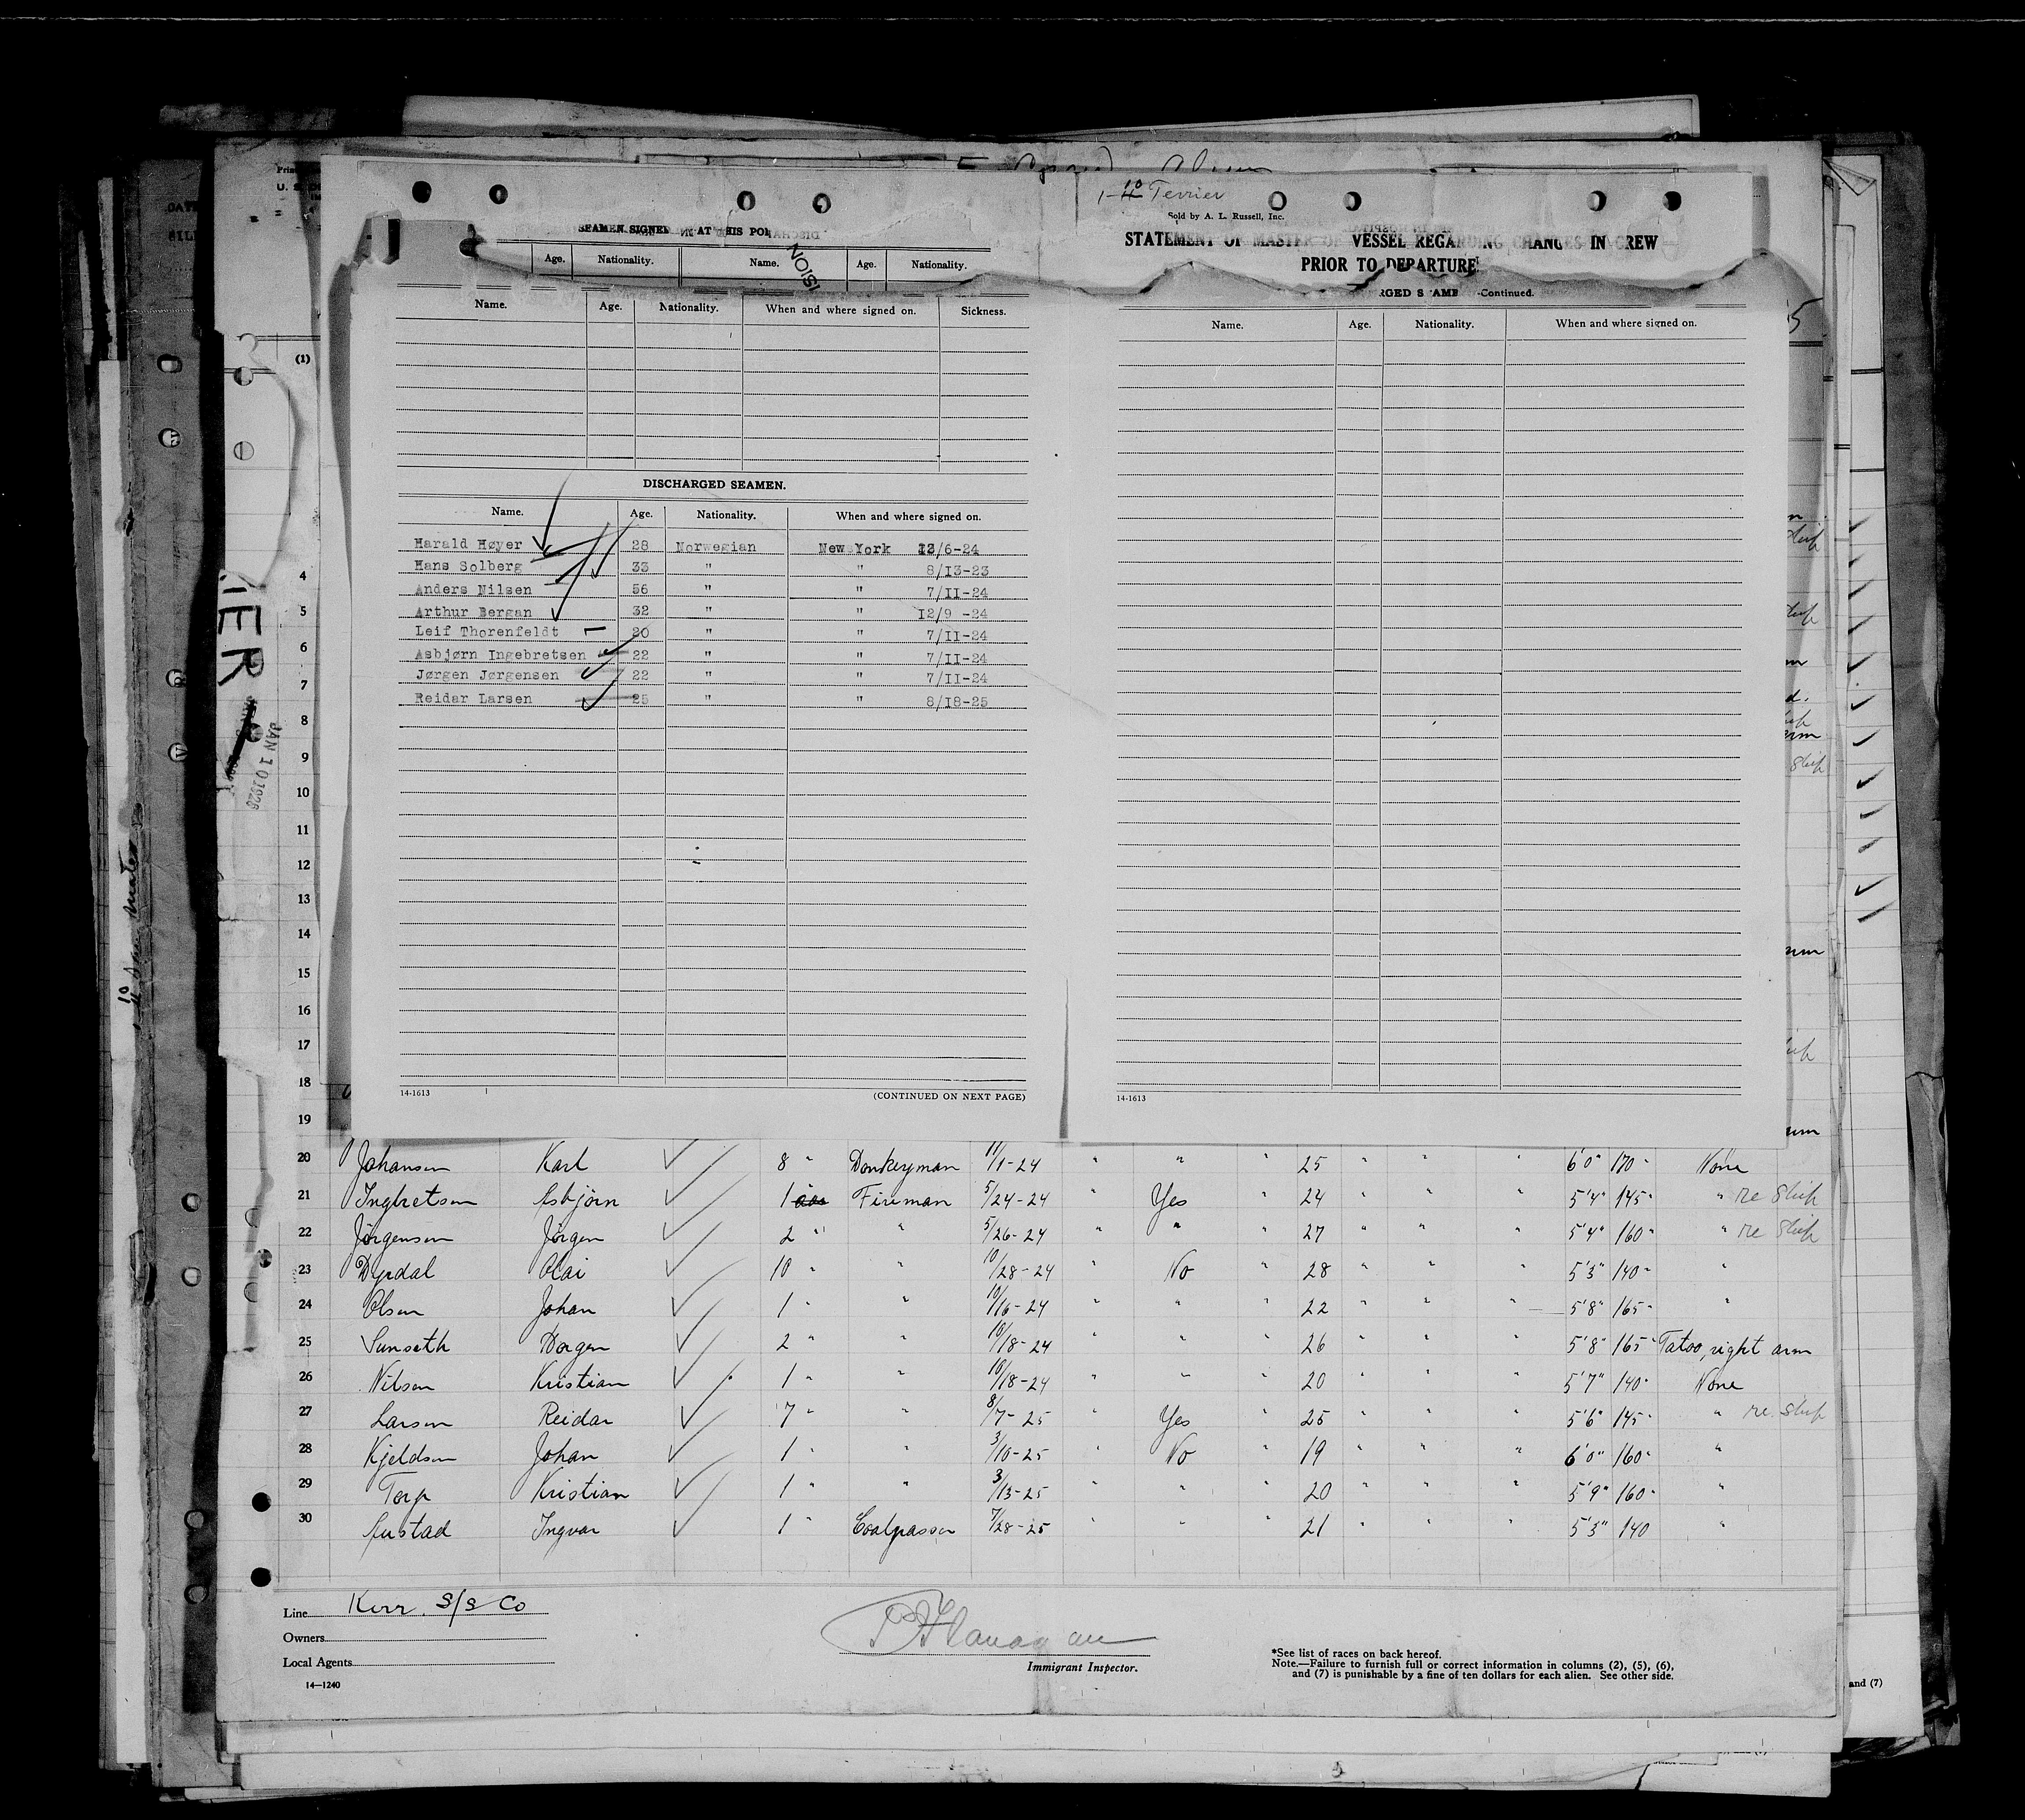 1-10/11 Terrier
Sold by A. L. Russell, Inc.
STATEMENT OF MASTER OF VESSEL REGARDING CHANGES IN CREW
PRIOR TO DEPARTURE
SEAMEN SIGNED AT THIS PORT
Age. Nationality. Name. Age. Nationality.
Name. Age. Nationality. When and where signed on. Sickness.
DISCHARGED SEAMEN.
Name. Age. Nationality. When and where signed on.
Harald Høyer 28 Norwegian New York 12/6-24
Hans Solberg 33 " " 8/13-23
Anders Nilsen 56 " " 7/11-24
Arthur Bergan 32 " " 12/9 -24
Leif Thorenfeldt 20 " " 7/11-24
Asbjørn Ingebretsen 22 " " 7/11-24
Jørgen Jørgensen 22 " " 7/11-24
Reidar Larsen 25 " " 8/18-25
14-1613
(CONTINUED ON NEXT PAGE)
-Continued.
Name. Age. Nationality. When and where signed on.
14-1613
JAN 10 1926
(1)
4
5
6
7
8
9
10
11
12
13
14
15
16
17
18
19
20 Johansen Karl 8 " Donkeyman 11/1-24 " " " 25 " " " 6'0" 170 " None
21 Ingbretsen Asbjörn 1 Fireman 5/24-24 " Yes " 24 " " " 5'4" 145 " " re Ship
22 Jörgensen Jörgen 2 " " 5/26-24 " " " 27 " " " 5'4" 160 " " re Ship
23 Dyrdal Olai 10 " " 10/28-24 " No " 28 " " " 5'3" 140 " "
24 Olsen Johan 1 " " 10/16-24 " " " 22 " " " 5'8" 165 " "
25 Sunseth Dorgen 2 " " 10/18-24 " " " 26 " " " 5'8" 165 " Tatoo, right arm
26 Nilsen Kristian 1 " " 10/18-24 " " " 20 " " " 5'7" 140 " None
27 Larsen Reidar 7 " " 8/7-25 " Yes " 25 " " " 5'6" 145 " " re. Ship
28 Kjeldsen Johan 1 " " 3/10-25 " No " 19 " " " 6'0" 160 " "
29 Torp Kristian 1 " " 3/13-25 " " " 20 " " " 5'9" 160 " "
30 Austad Ingvar 1 " Coalpasser 7/28-25 " " " 21 " " " 5'3" 140 "
Line Kerr. S/S Co
Owners
Local Agents
14—1240
Flanagan
Immigrant Inspector.
*See list of races on back hereof.
Note.—Failure to furnish full or correct information in columns (2), (5), (6),
and (7) is punishable by a fine of ten dollars for each alien. See other side.
and (7)